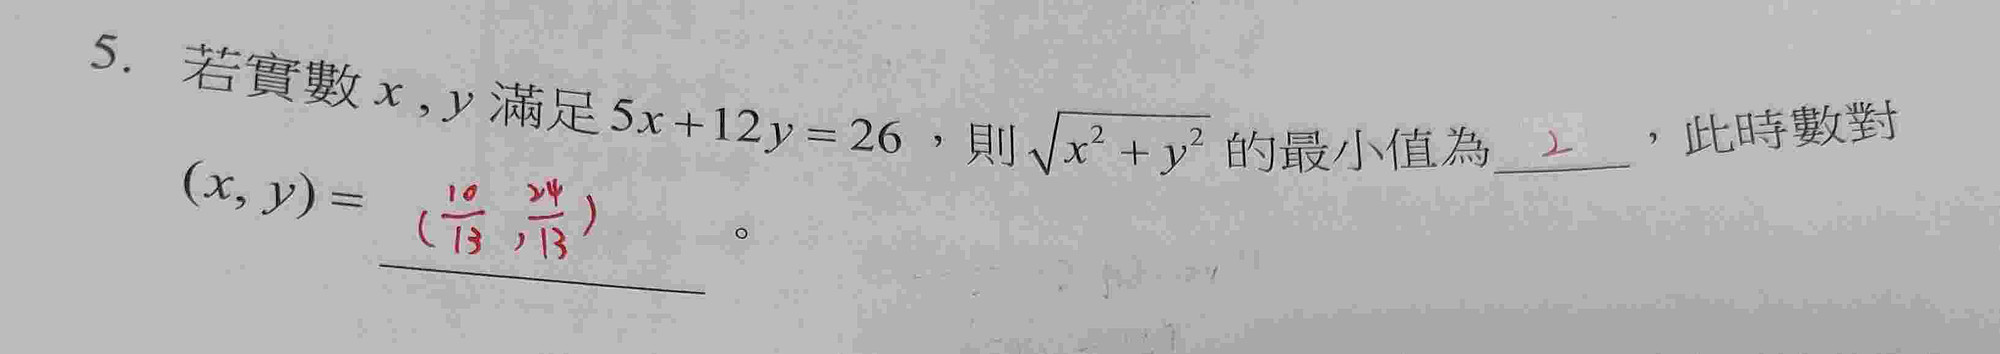 5. 若實數 x , y 滿足 5x+12y=26 , 則 √(x²+y²) 的最小值為 2 , 此時數對
(x, y) = (10/13 , 24/13) 。